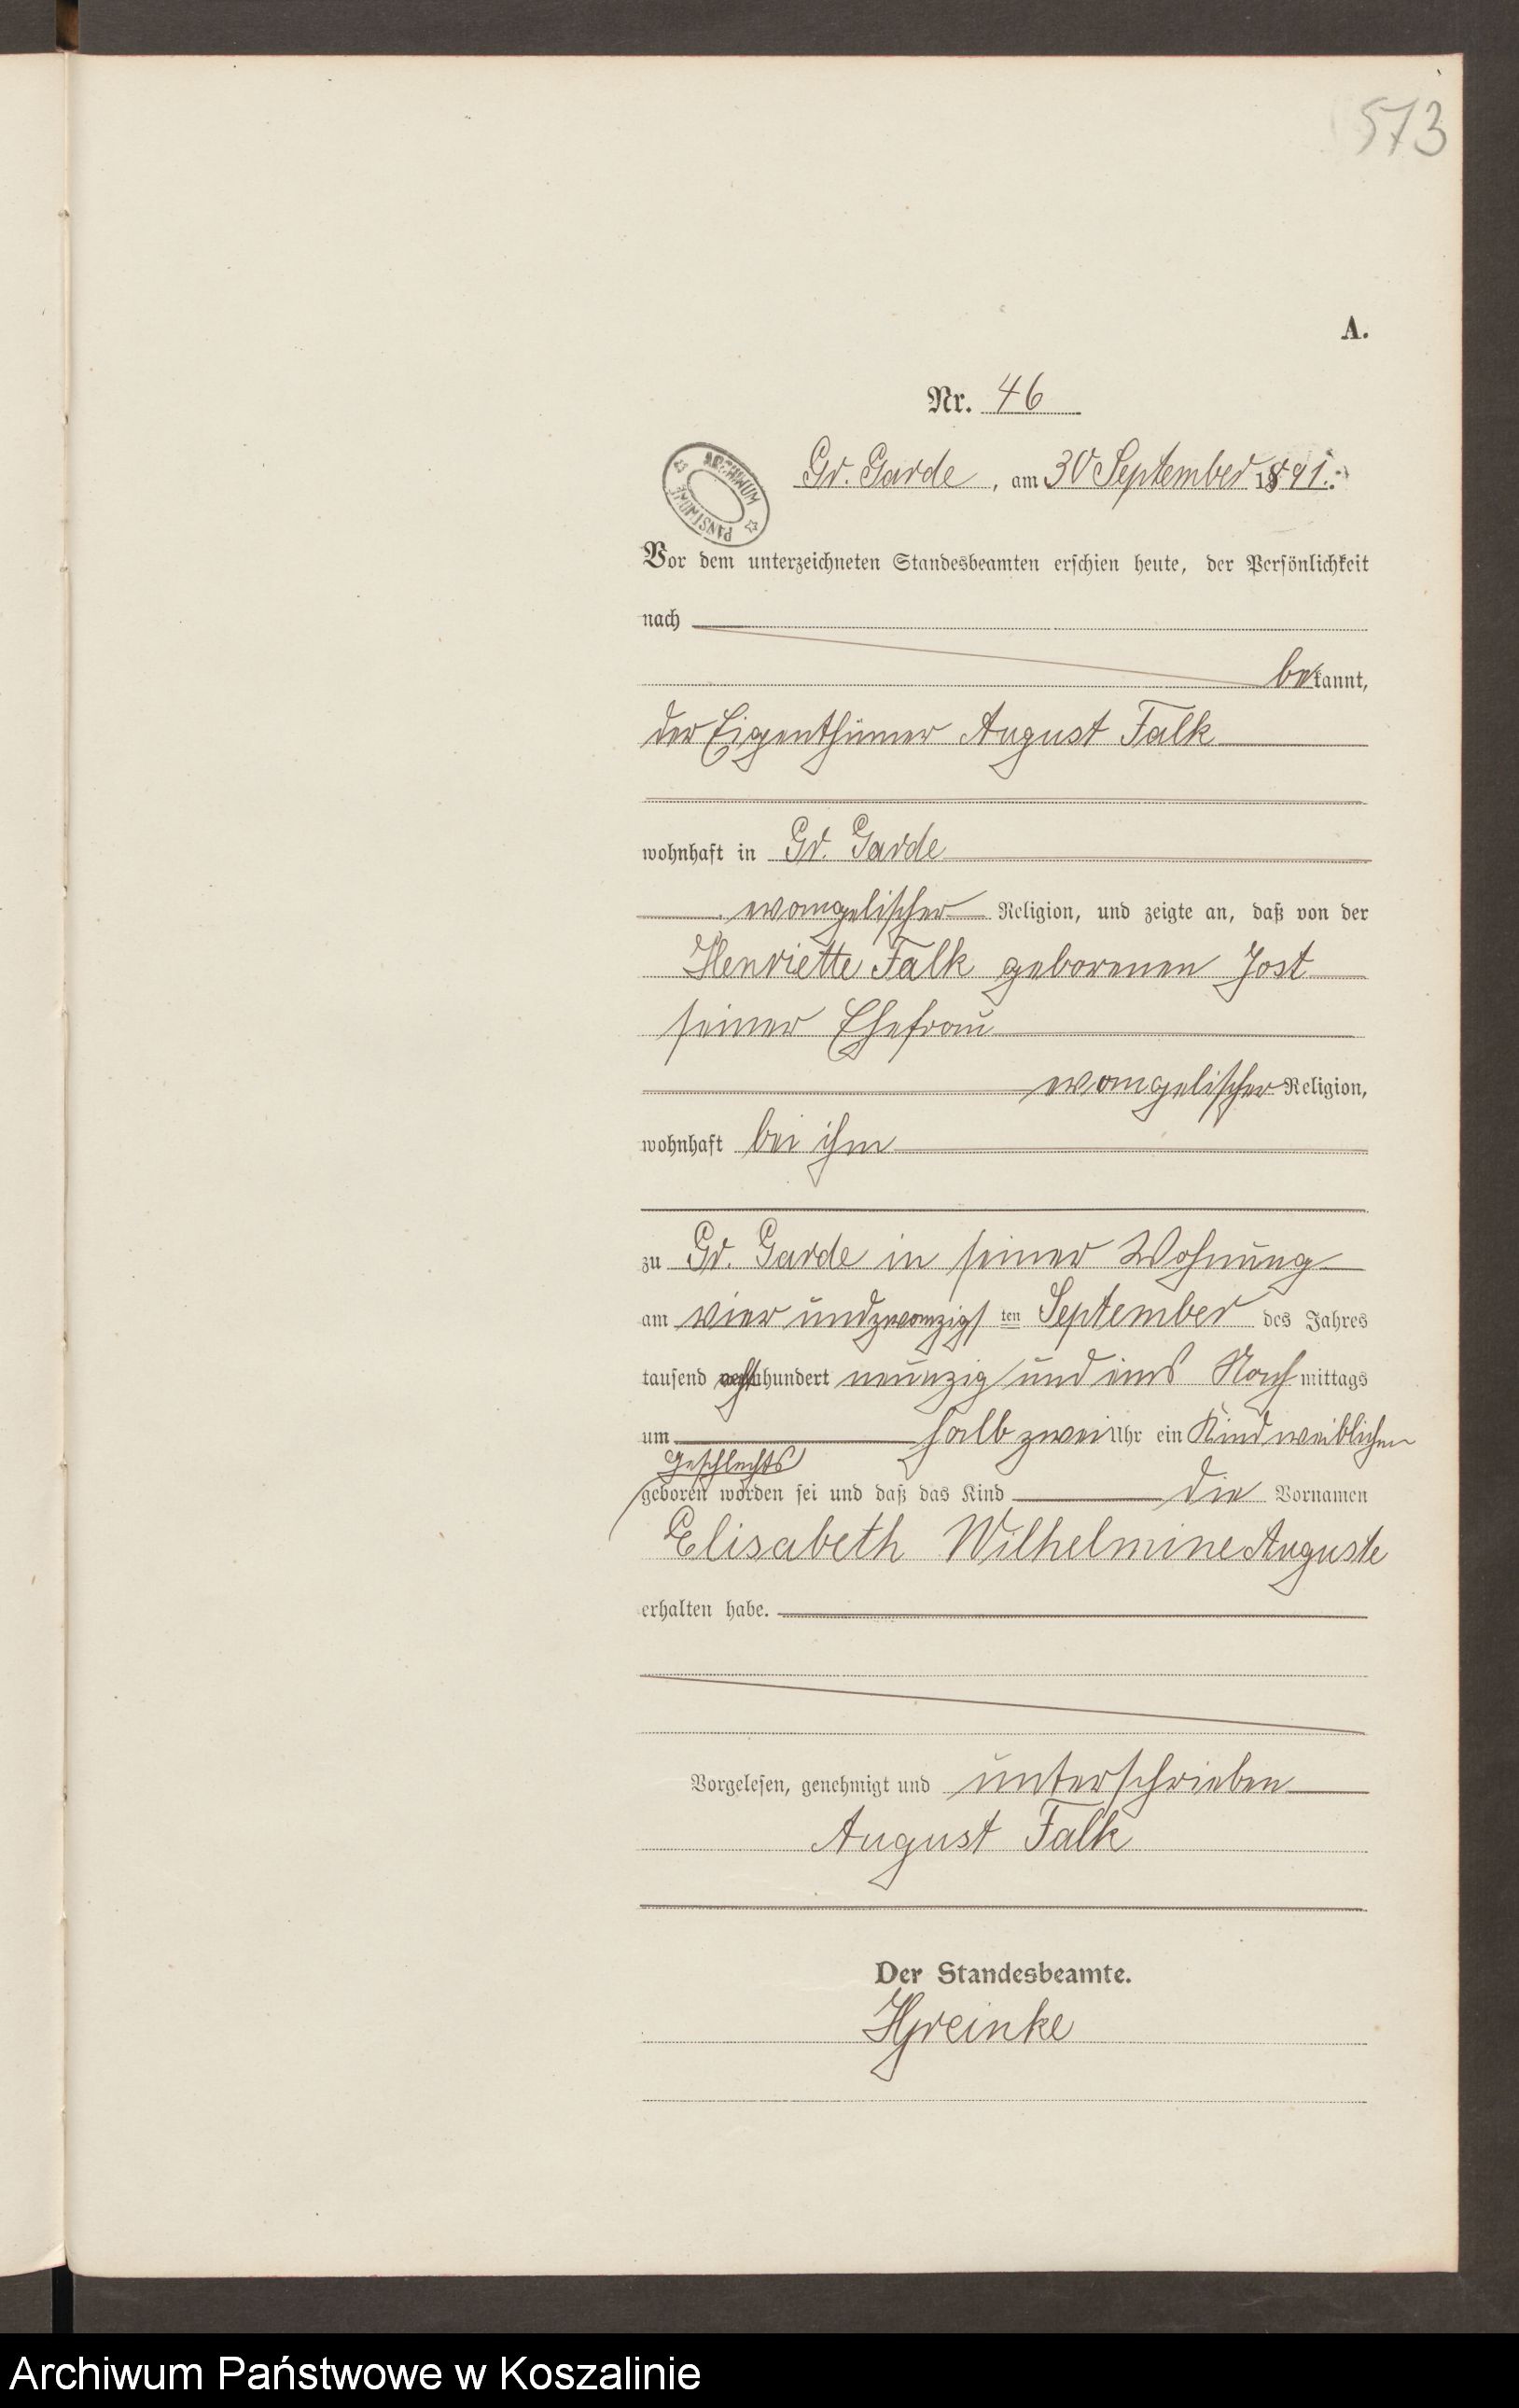 573
A.
Nr. 46
ARCHIWUM PAŃSTWOWE
Gr. Garde, am 30 September 1891.
Vor dem unterzeichneten Standesbeamten erschien heute, der Persönlichkeit
nach
bekannt,
der Eigenthümer August Falk
wohnhaft in Gr. Garde
evangelischer Religion, und zeigte an, daß von der
Henriette Falk geborenen Jost
seiner Ehefrau
evangelischer Religion,
wohnhaft bei ihm
zu Gr. Garde in seiner Wohnung
am vier und zwanzigsten September des Jahres
tausend achthundert neunzig und eins Nachmittags
um halb zwei Uhr ein Kind weiblichen
Geschlechts
geboren worden sei und daß das Kind die Vornamen
Elisabeth Wilhelmine Auguste
erhalten habe.
Vorgelesen, genehmigt und unterschrieben
August Falk
Der Standesbeamte.
Archiwum Państwowe w Koszalinie